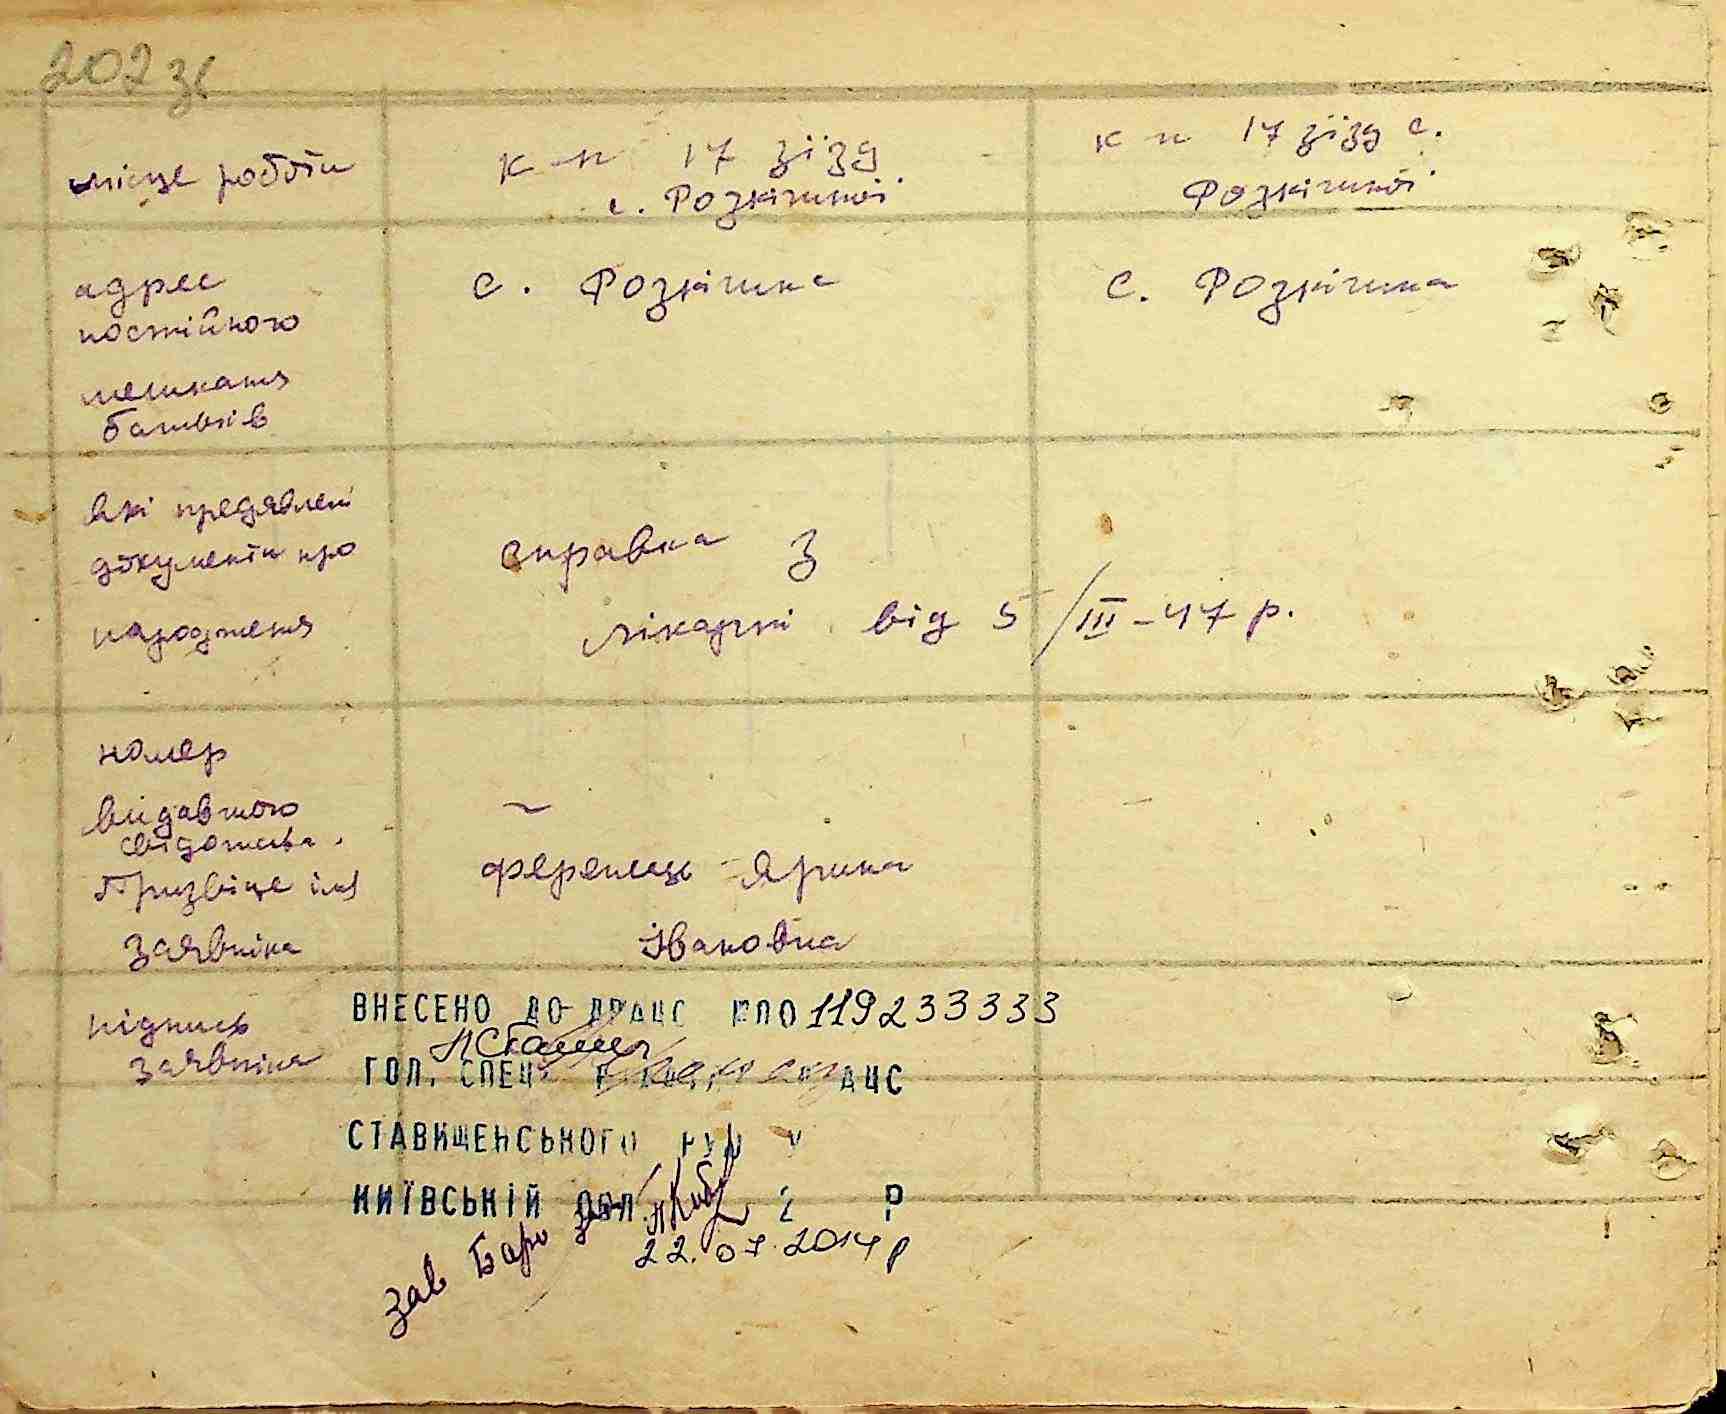 202 зв
місце роботи
к-п 17 зїзд
с. Розкішної
к п 17 зїзд с.
Розкішної
адрес
постійного
мешканя
батьків
с. Розкішна
с. Розкішна
які предявлені
документи про
народження
справка з
лікарні від 5/III-47 р.
номер
видавного
свідотства.
~
—
Призвіще імя
заявніка
Ференець Ярина
Івановна
підпись
заявніка
ВНЕСЕНО ДО ДРАЦС КПО 119233333
ГОЛ. СПЕЦ АЦС
СТАВИЩЕНСЬКОГО РУЮ У
КИЇВСЬКІЙ ОБЛ. 2 Р
зав Бюро
22.07.2014р